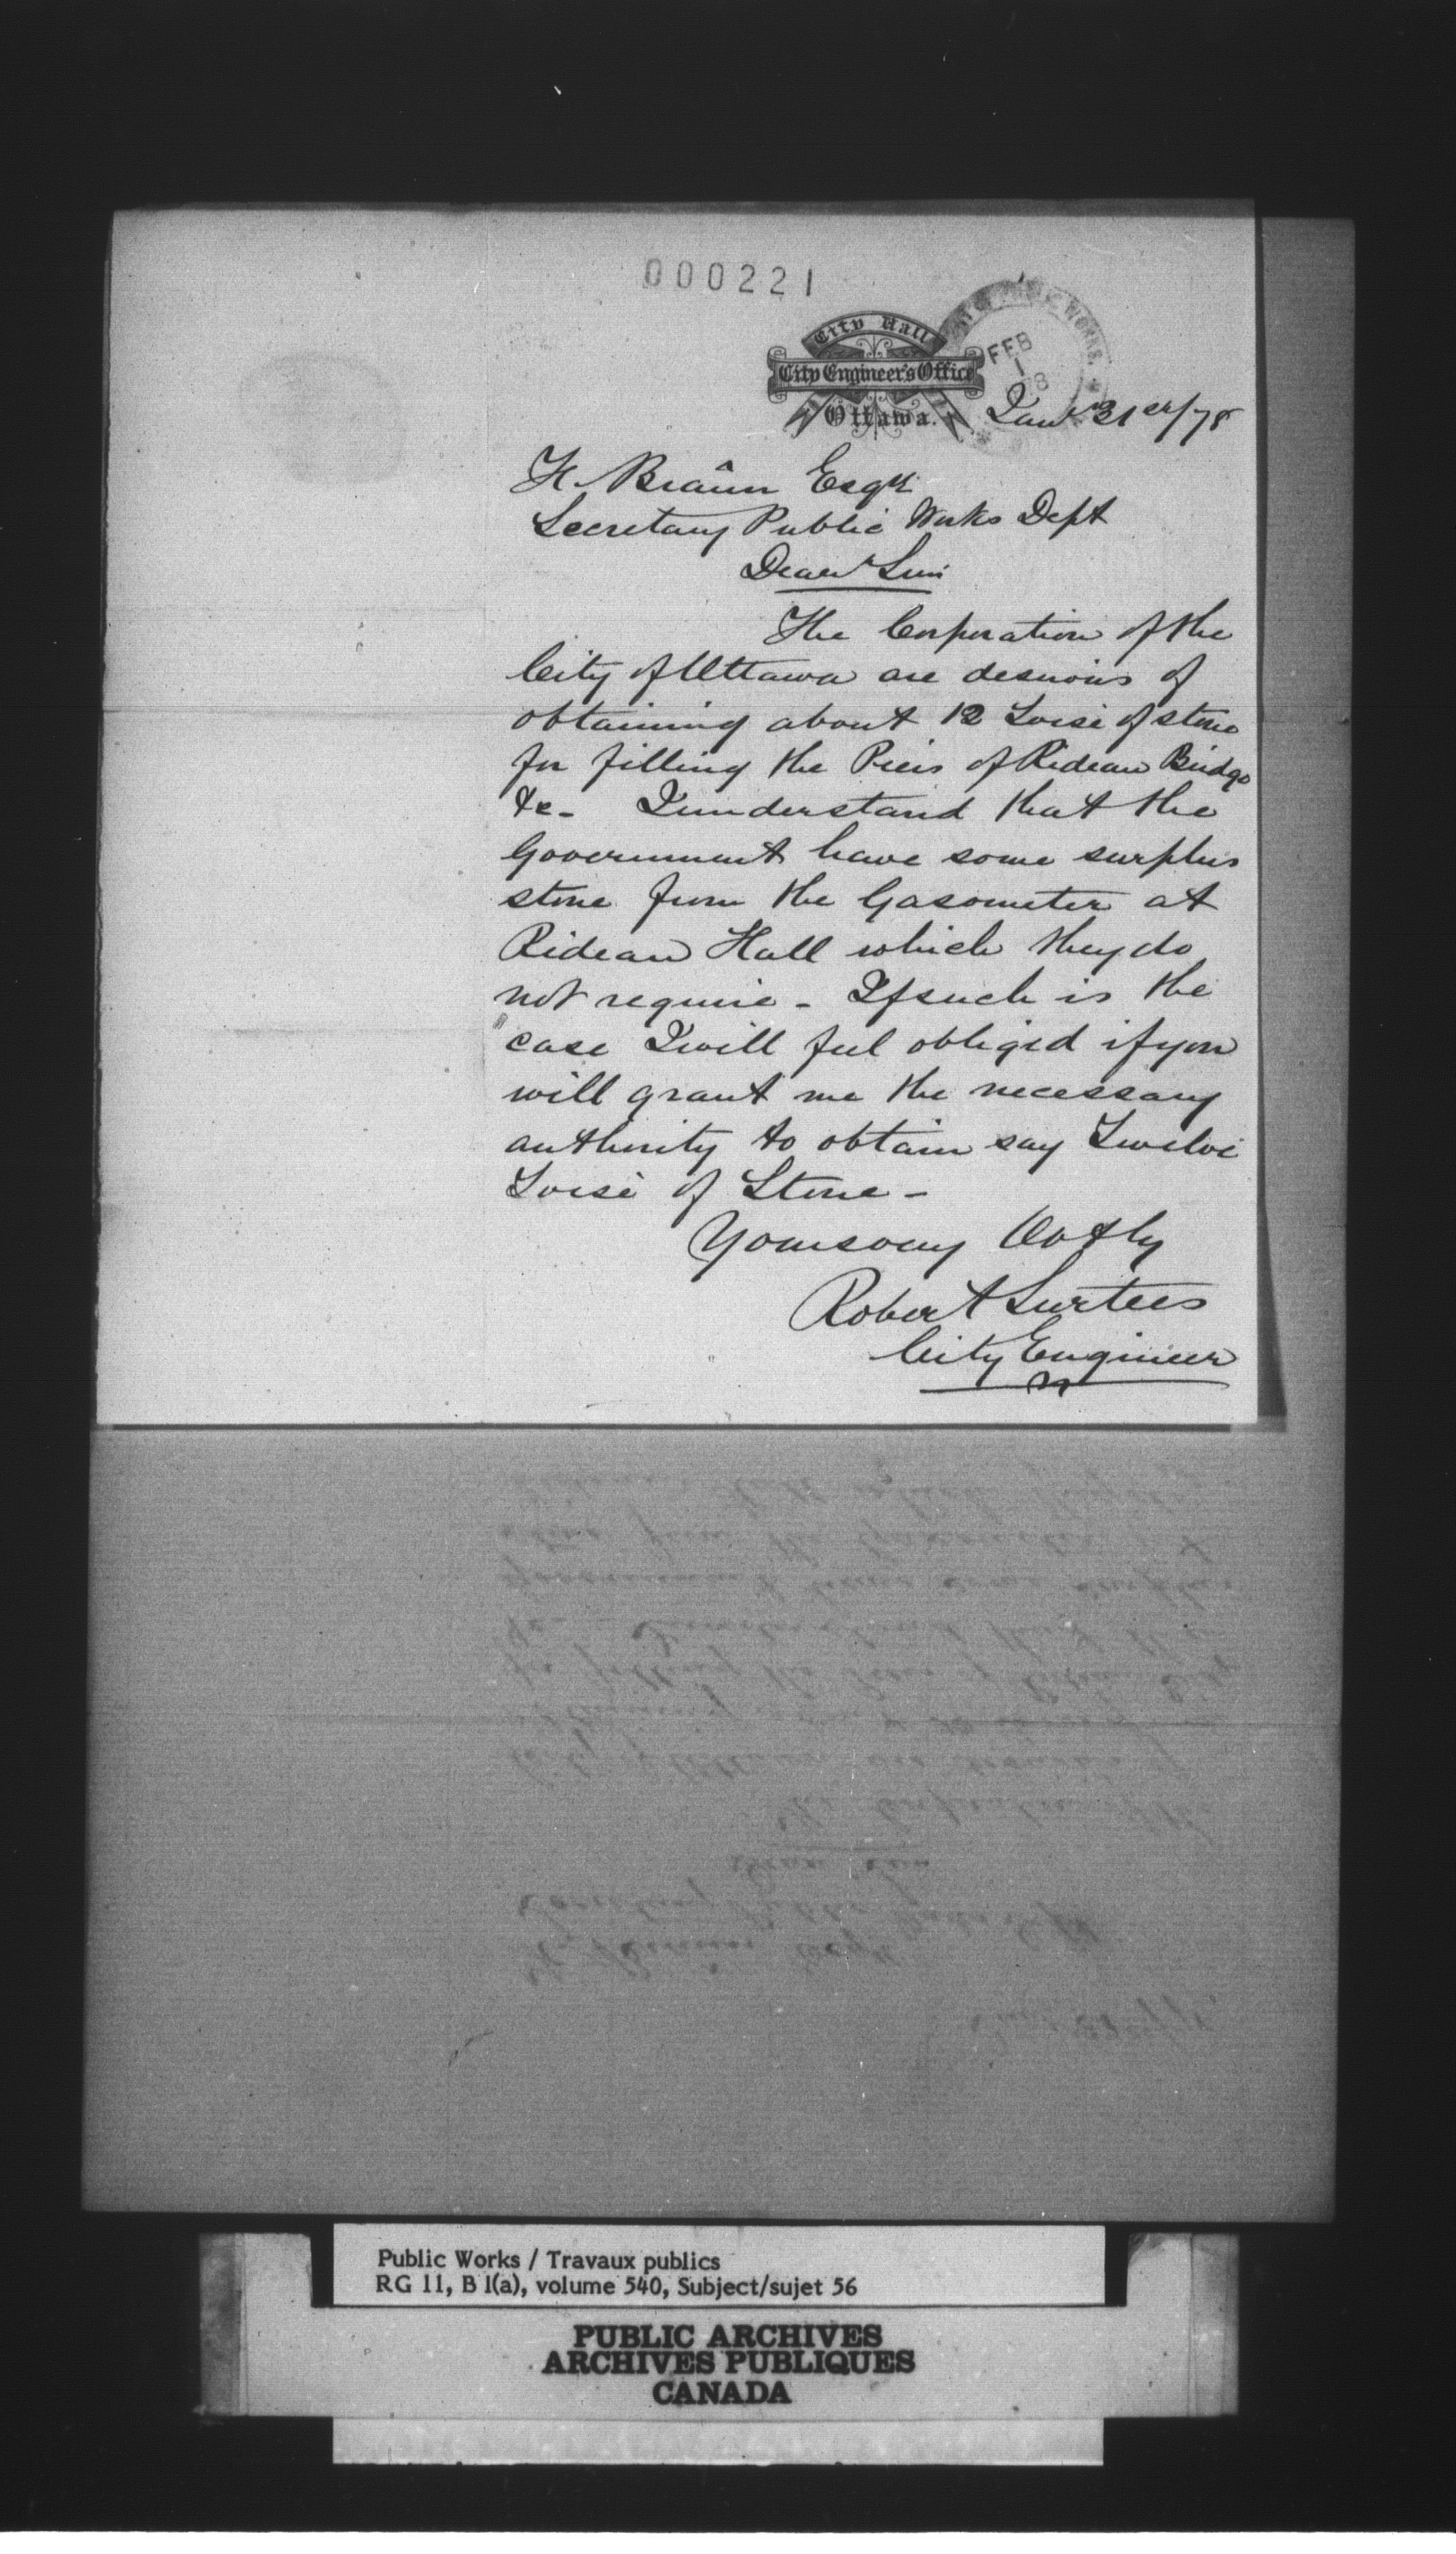 000221
City Hall
City Engineer's Office
Ottawa.
DEPT OF PUBLIC WORKS.
FEB
1
78
Jany 31st/78
F. Braün Esqr
Secretary Public Works Dept
Dear Sir
The Corporation of the
City of Ottawa are desirous of
obtaining about 12 Toise of stone
for filling the Piers of Rideau Bridge
&c - I understand that the
Government have some surplus
stone from the Gasometer at
Rideau Hall which they do
not require - If such is the
case I will feel obliged if you
will grant me the necessary
authority to obtain say Twelve
Toise of Stone -
Yours very Obtly
Robert Surtees
City Engineer
Public Works / Travaux publics
RG 11, B 1(a), volume 540, Subject/sujet 56
PUBLIC ARCHIVES
ARCHIVES PUBLIQUES
CANADA